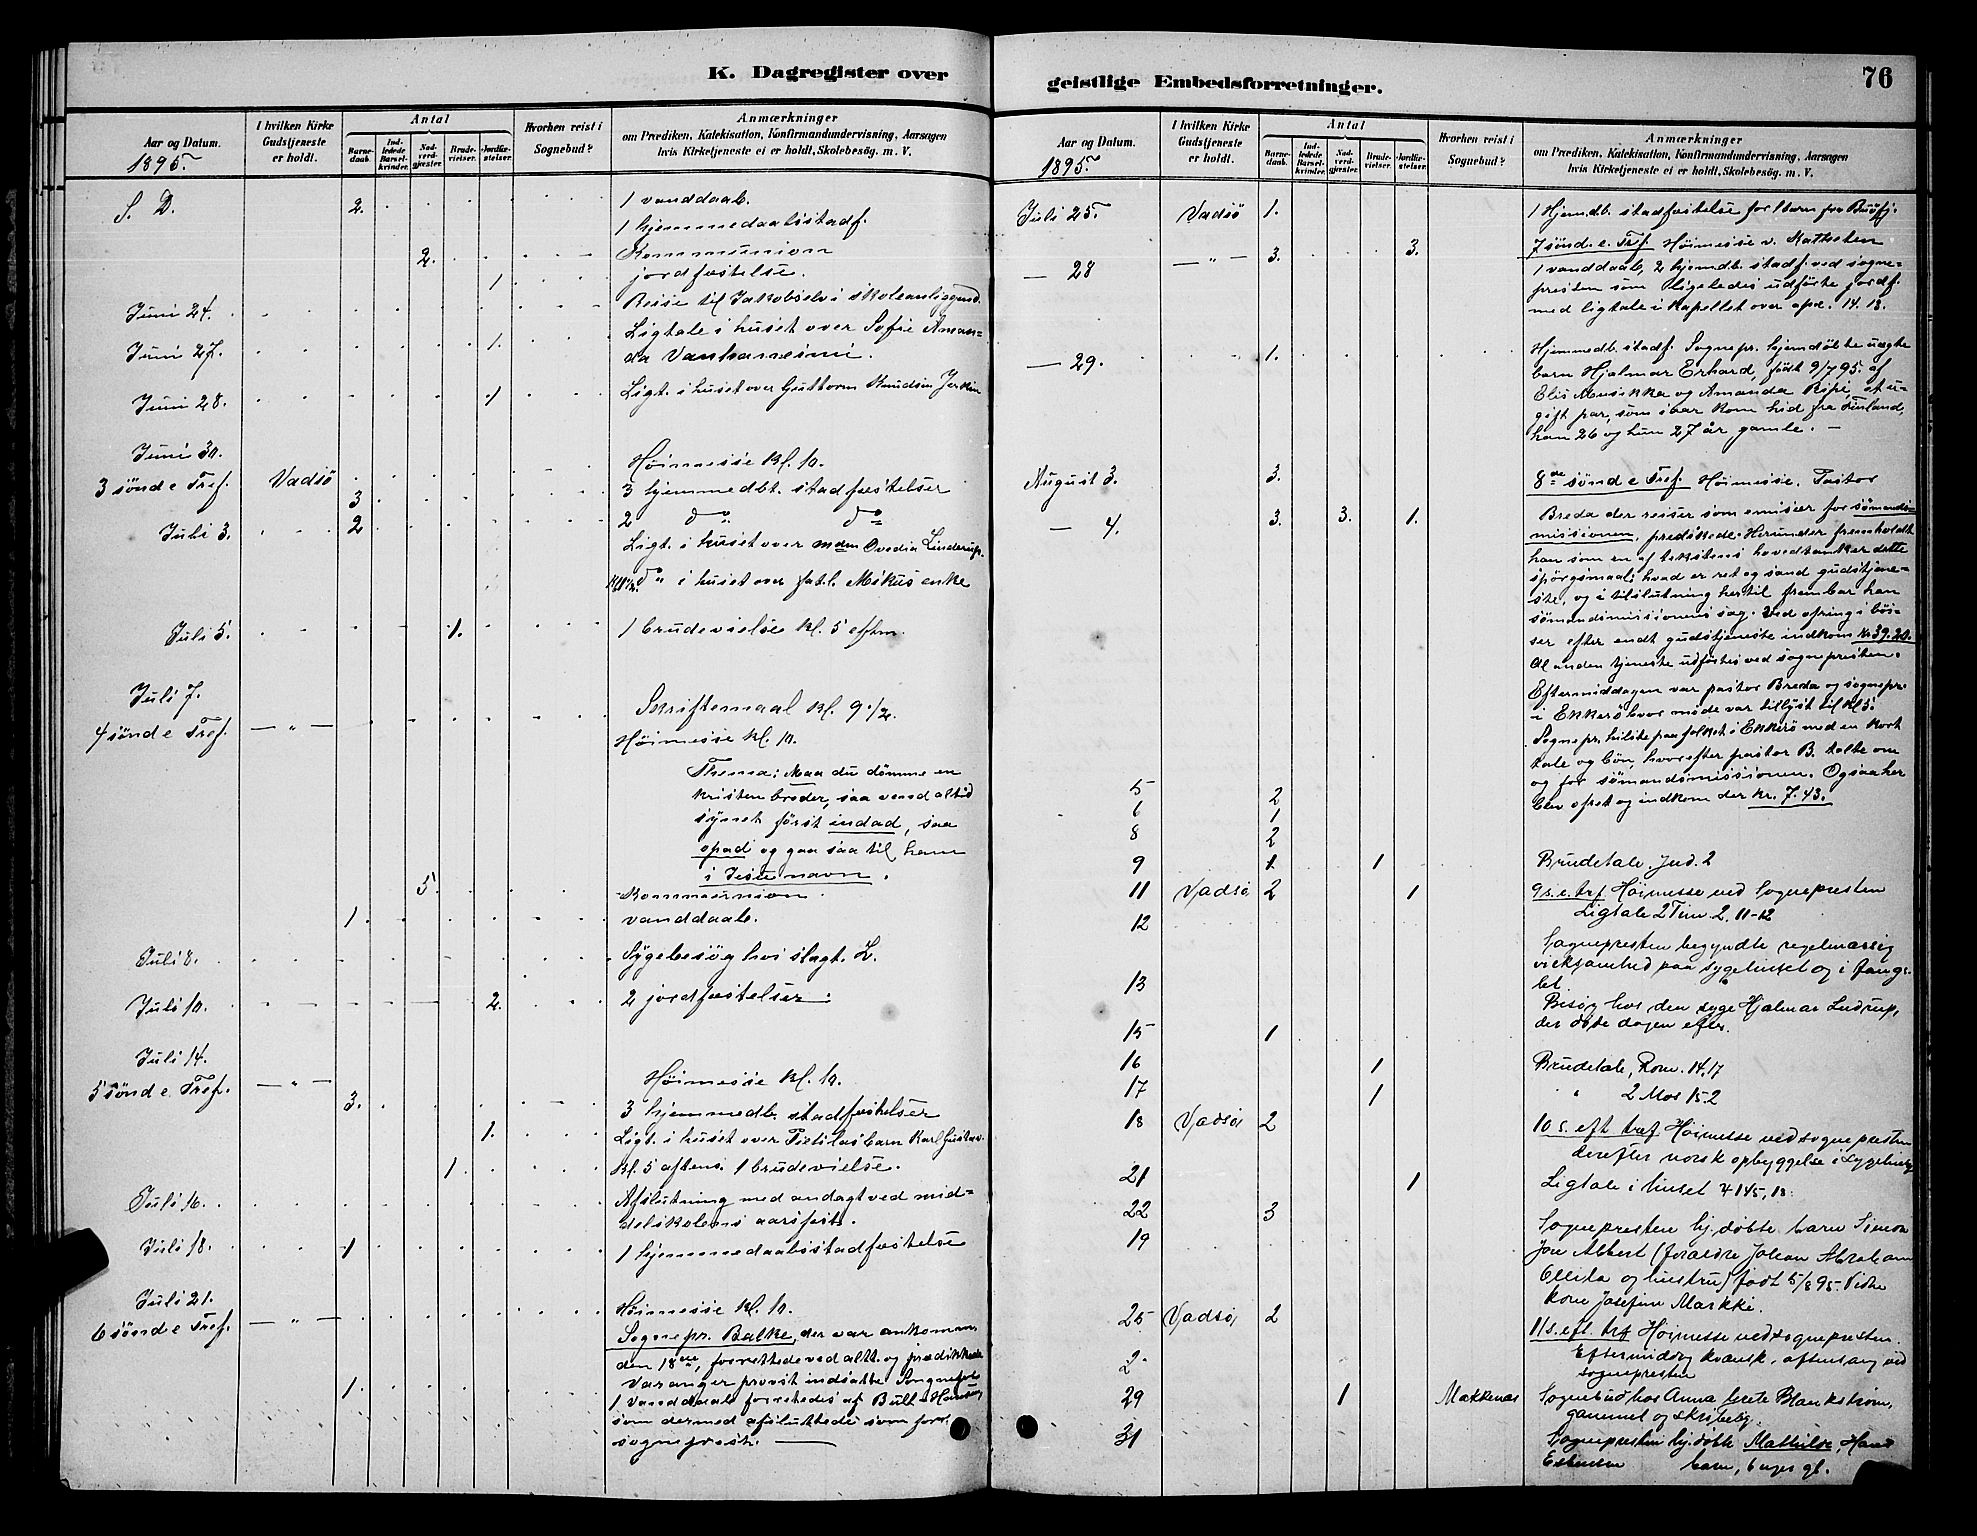 K. Dagregister over
geistlige Embedsforretninger.
76
Aar og Datum.
1895
I hvilken Kirke Gudstjeneste er holdt.
Antal
Barnedaab.
Indledede Barselkvinder.
Nadverdgjester.
Brudevielser.
Jordfæstelser.
Hvorhen reist i Sognebud?
Anmærkninger
om Prædiken, Katekisation, Konfirmandundervisning, Aarsagen
hvis Kirketjeneste ei er holdt, Skolebesøg. m. V.
S. D. 2. 1 vanddaab.
1 hjemmedaabsstadf.
2. Kommunion
1 jordfæstelse.
Juni 24. Reise til Jakobselv i skoleanliggend.
Juni 27. 1. Ligtale i huset over Sofie Aman-
da Vanharesimi.
Juni 28. 1 Ligt. i huset over Guttorm Knudsen
Juni 30.
3 sønd e Tref. Vadsø Høimesse kl. 10.
3 3 hjemmedbt. stadfæstelser
Juli 3. 2 2 do do
Ligt. i huset over mdm Ovedia Linderup.
do i huset over fatl. Mikus enke
Juli 5. 1. 1 brudevielse kl. 5 eftm.
Juli 7. Skriftemaal kl. 9 1/2.
4 sønd e Tref. — " — Høimesse kl. 10.
Thema: Maa du dømme en
kristen broder, saa vend altid
synet først indad, saa
opad og gaa saa til ham
i Jesu navn.
5. Kommunion
1. vanddaab.
Juli 8. Sygebesøg hos slagt. L.
Juli 10. 2. 2 jordfæstelser.
Juli 14.
5 sønd e. Tref. — " — Høimesse kl. 10.
3. 3 hjemmedb. stadfæstelser
1. Ligt. i huset over Pietilas barn Karl Gustav.
1. Kl. 5 aftens 1 brudevielse.
Juli 16. Afslutning med andagt ved mid-
delskolens aarsfest.
Juli 18. 1 1 hjemmedaabsstadfæstelse
Juli 21. Høimesse kl. 10.
6 sønd e Tref. — " — Sognepr. Balke, der var ankommen
den 18de, forrettede ved altr. og prædikkede
Varanger provst indsatte Sognepr.
1. 1 vanddaab forrettedes af Bull-Hansen
som dermed afsluttede som forr.
sogneprest. —
Aar og Datum.
1895.
I hvilken Kirke Gudstjeneste er holdt.
Antal
Barnedaab.
Indledede Barselkvinder.
Nadverdgjester.
Brudevielser.
Jordfæstelser.
Hvorhen reist i Sognebud?
Anmærkninger
om Prædiken, Katekisation, Konfirmandundervisning, Aarsagen
hvis Kirketjeneste ei er holdt, Skolebesøg. m. V.
Juli 25. Vadsø 1. 1 Hjemdb. stadfæstelse for 1 barn fra
7 sønd. e. Tref. Høimesse v.
— 28 — " — 3. 3. 1 vanddaab, 2 hjemdb. stadf. ved sogne-
presten som ligeledes udførte jordf.
med ligtale i kapellet over apd. 14. 13.
— 29. 1. Hjemmedb. stadf. Sognepr. hjemdøbte uægte
barn Hjalmar Erhard, født 9/7 95. af
Elis Musikka og Amanda Ripi, et u-
gift par, som i aar kom hid fra Finland,
han 26 og hun 27 år gamle. —
August 3. 3. 8de sønd e Tref Høimesse. Pastor
— 4. 3. 3. 1. Breda der reiser som emisær for sømands-
missionen, prædikede. Herunder fremholdt
han som en af tekstens hovedtanker dette
spørgsmaal: hvad er ret og sand gudstjene-
ste, og i tilslutning hertil frembar han
sømandsmissionens sag. Ved ofring i bøs-
ser efter endt gudstjeneste indkom kr 39.20.
Al anden tjeneste udførtes ved sognepresten.
Eftermiddagen var pastor Breda og sognepr.
i Ekkerø hvor møde var tillyst til kl 5.
Sognepr. hilste paa folket i Ekkerø med en kort
tale og bøn, hvorefter pastor B. talte om
og for sømandsmissionen. Ogsaa her
blev ofret og indkom der kr. 7.43.
5 2
6 1
8 2
9 1 1 Brudetale, Jud. 2
11 Vadsø 2 1 9 s. e. tref Høimesse ved Sognepresten
Ligtale 2 Tim 2, 11-12
12 Sognepresten begyndte regelmæssig
virksomhed paa sygehuset og i fængs-
let.
13 Besøg hos den syge Hjalmar Ludrup,
der døde dagen efter.
15 1
16 1 Brudetale, Rom. 14.17
17 1 " 2 Mos 15.2
18 Vadsø 2 10 s. eft tref Høimesse ved sognepresten
derefter norsk opbyggelse i Sygehuset
21 1 Ligtale i huset 145, 18.
22 3
19 Sognepresten hj. døbte barn Simon
Albert (forældre Johan Abraham
og hustru) født 5/8 95.
kone Josefine Markki.
25 Vadsø 2 11 s. eft. tref Høimesse ved sognepresten.
Eftermiddag kvænsk aftensang ved
sognepresten
29 1 Makkenas Sognebud hos Anna Grete Blankstrøm,
gammel og skrøbelig.
31 Sognepresten hj. døbte Mathilde, Hans
barn, 6 uger gl.